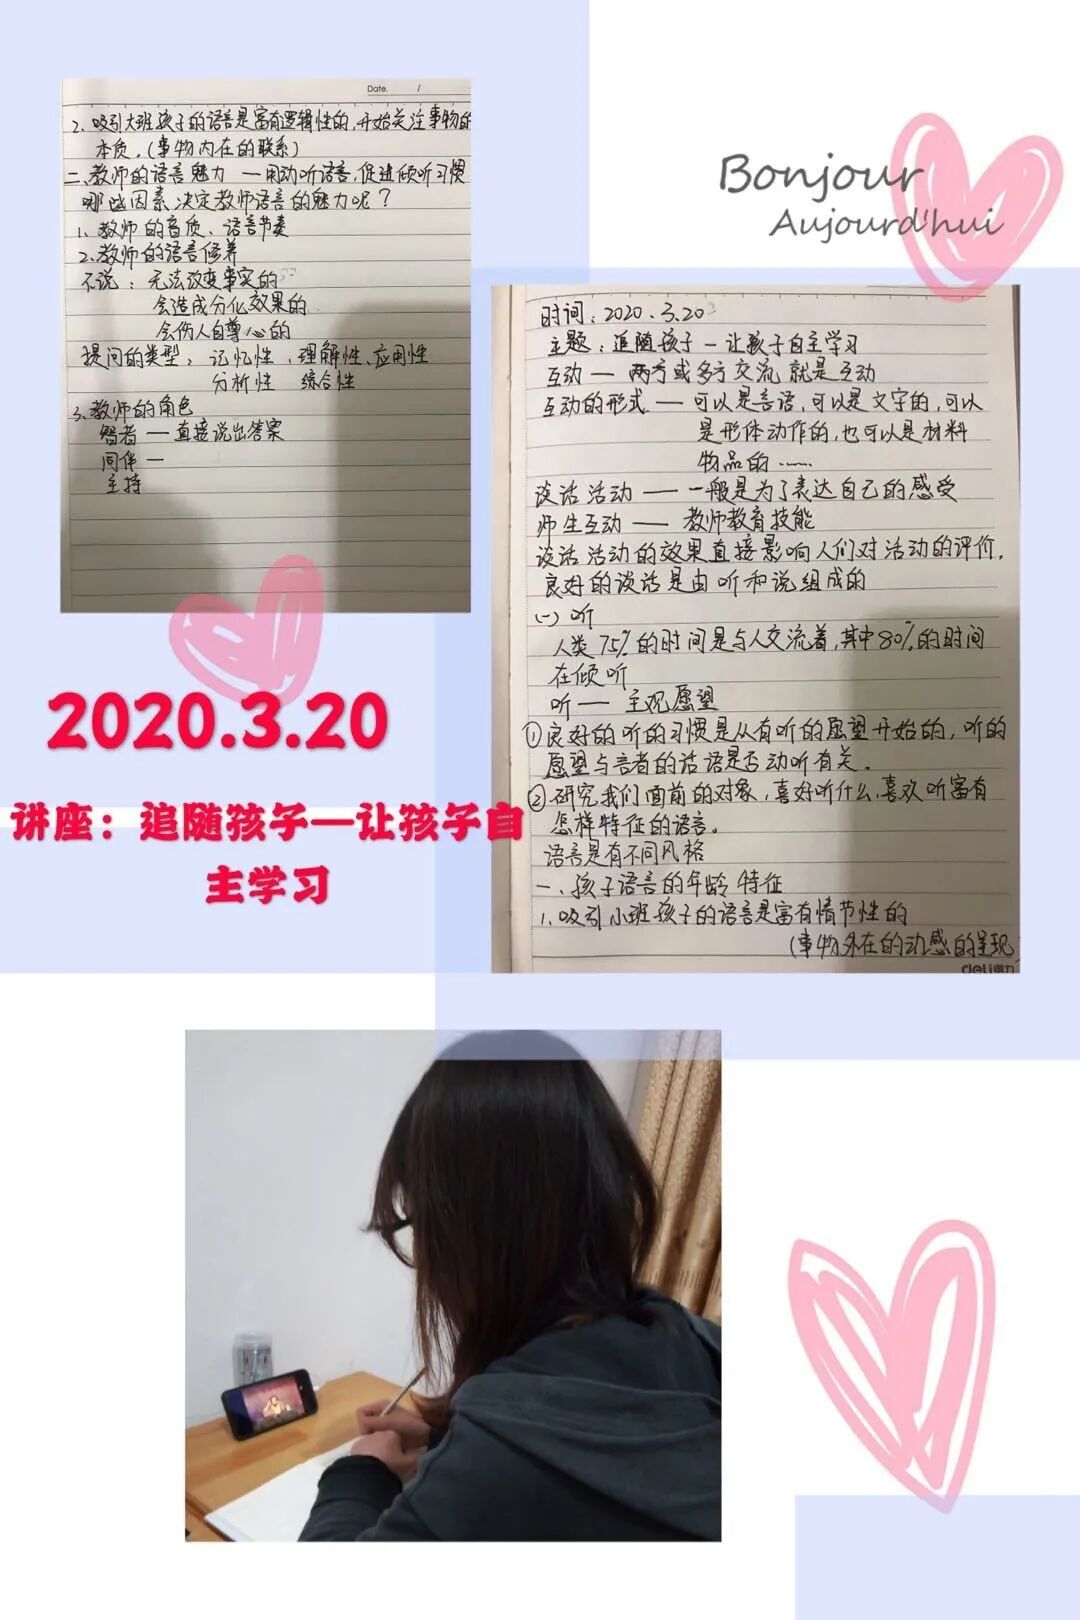 Date. /
2、吸引大班孩子的语言是富有逻辑性的,开始关注事物的
本质。(事物内在的联系)
二、教师的语言魅力 —用动听语言,促进倾听习惯
哪些因素决定教师语言的魅力呢?
1、教师的音质、语言节奏
2、教师的语言修养
不说:无法改变事实的
会造成分化效果的
会伤人自尊心的
提问的类型:记忆性、理解性、应用性
分析性 综合性
3、教师的角色
智者 — 直接说出答案
同伴 —
主持
Bonjour
Aujourd'hui
时间:2020.3.20
主题:追随孩子—让孩子自主学习
互动 — 两方或多方交流就是互动
互动的形式 — 可以是言语,可以是文字的,可以
是形体动作的,也可以是材料
物品的……
谈话活动 — 一般是为了表达自己的感受
师生互动 — 教师教育技能
谈话活动的效果直接影响人们对活动的评价。
良好的谈话是由听和说组成的
(一)听
人类75%的时间是与人交流着,其中80%的时间
在倾听
听 — 主观愿望
①良好的听的习惯是从有听的愿望开始的,听的
愿望与言者的话语是否动听有关。
②研究我们面前的对象,喜好听什么,喜欢听富有
怎样特征的语言。
语言是有不同风格
一、孩子语言的年龄特征
1、吸引小班孩子的语言是富有情节性的
(事物外在的动感的呈现
deli得力
2020.3.20
讲座:追随孩子—让孩子自
主学习